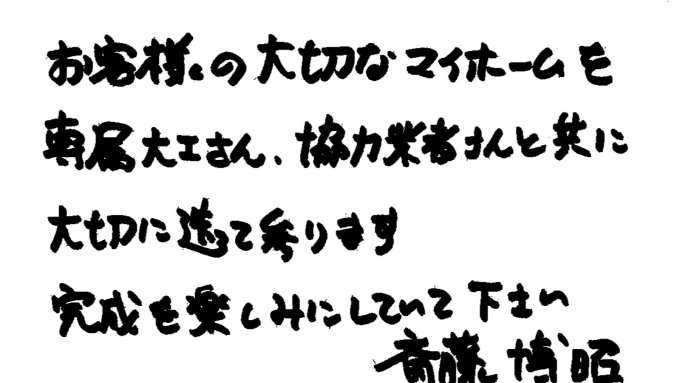 お客様の大切なマイホームを
専属大工さん、協力業者さんと共に
大切に造って参ります
完成を楽しみにしていて下さい
斎藤博昭